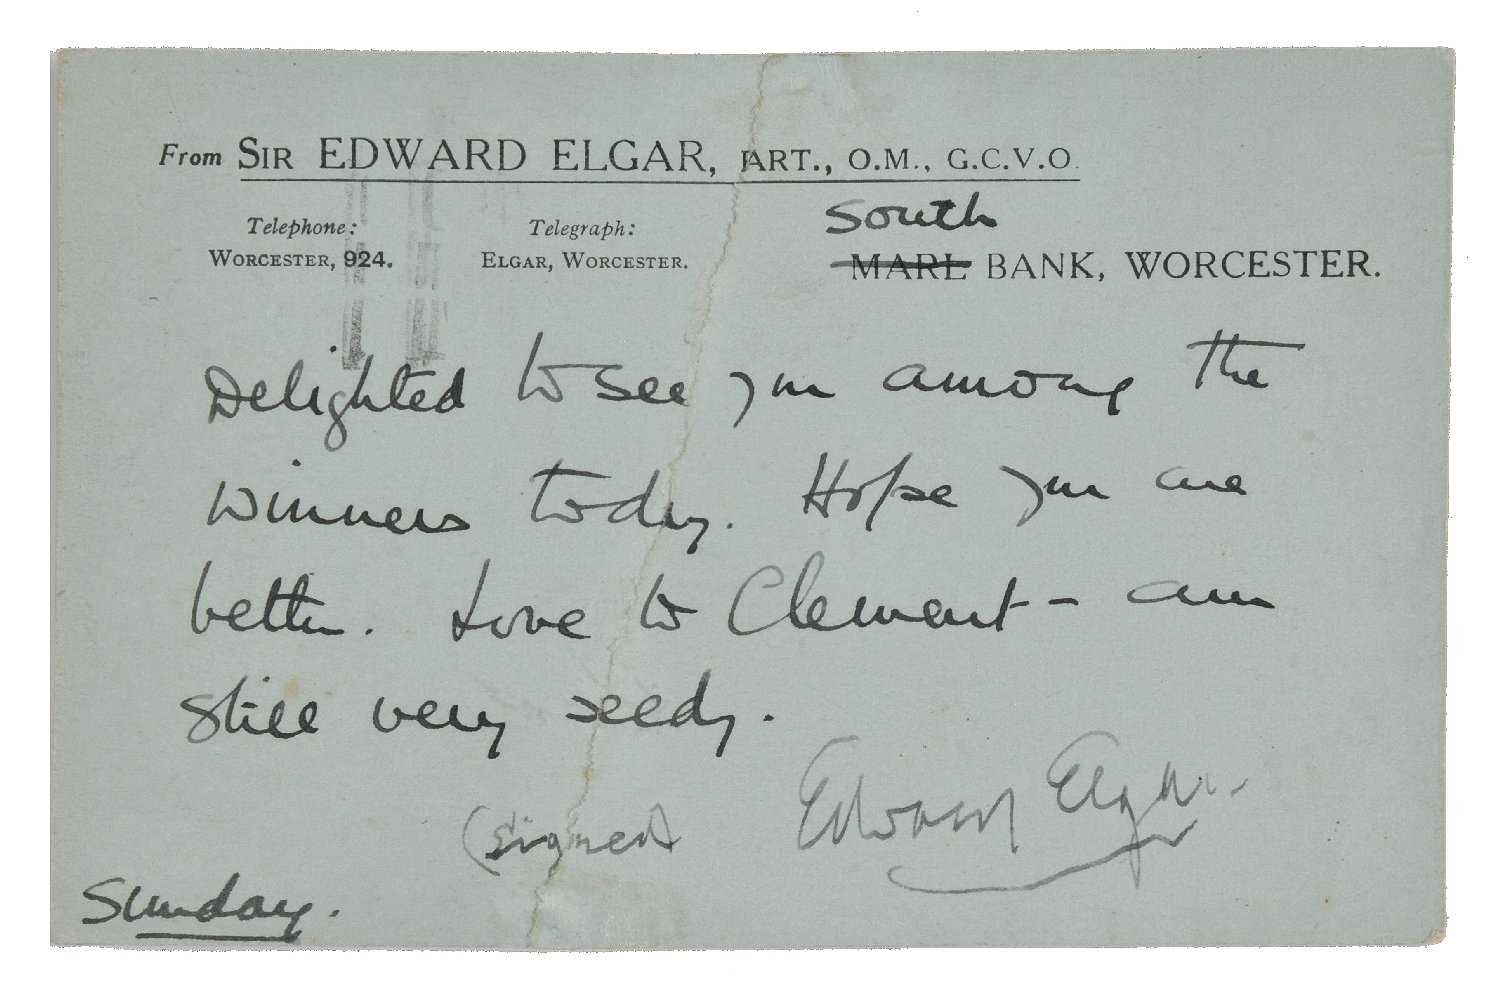 From SIR EDWARD ELGAR, BART., O.M., G.C.V.O.
Telephone:
WORCESTER, 924.
Telegraph:
ELGAR, WORCESTER.
South
MARL BANK, WORCESTER.
Delighted to see you among the
winners today. Hope you are
better. Love to Clement – am
still very seedy.
(Signed) Edward Elgar.
Sunday.